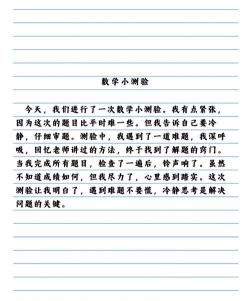 数学小测验
今天，我们进行了一次数学小测验。我有点紧张，
因为这次的题目比平时难一些。但我告诉自己要冷
静，仔细审题。测验中，我遇到了一道难题，我深呼
吸，回忆老师讲过的方法，终于找到了解题的窍门。
当我完成所有题目，检查了一遍后，铃声响了。虽然
不知道成绩如何，但我尽力了，心里感到踏实。这次
测验让我明白了，遇到难题不要慌，冷静思考是解决
问题的关键。